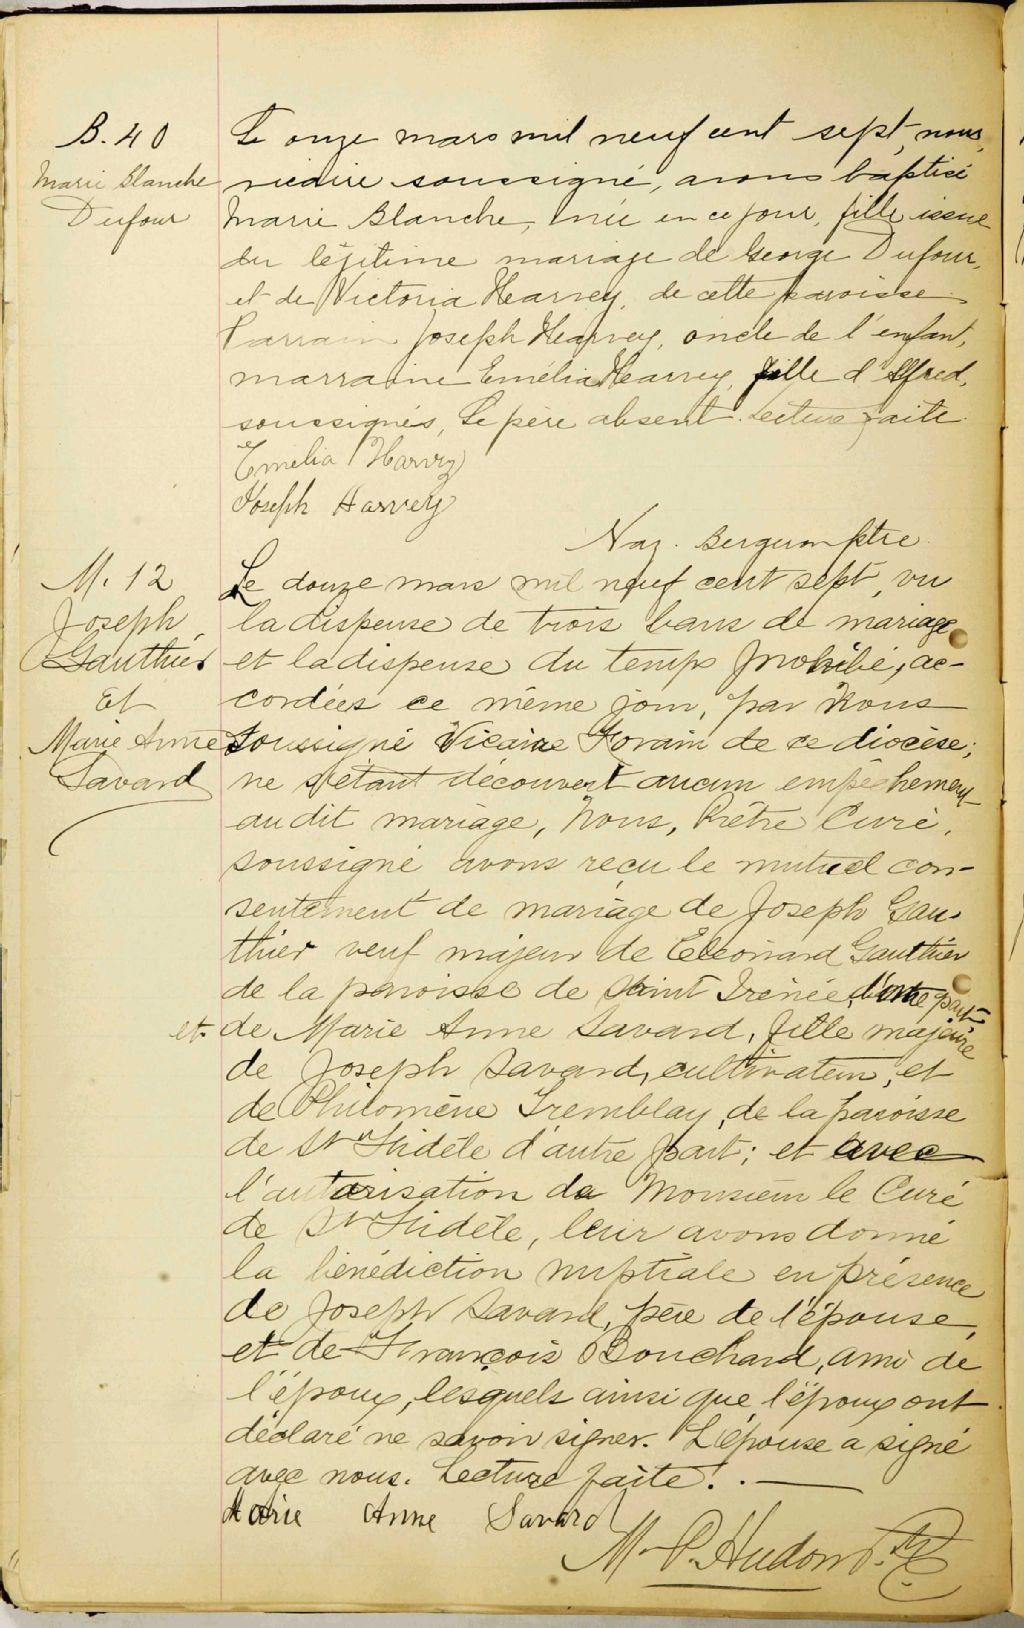 B. 40
Marie Blanche
Dufour
Le onze mars mil neuf cent sept, nous,
vicaire soussigné, avons baptisé
Marie Blanche, née en ce jour, fille issue
du légitime mariage de George Dufour,
et de Victoria Hearvey, de cette paroisse.
Parrain Joseph Hearvey, oncle de l'enfant,
marraine Emélia Hearvey, fille d'Alfred,
soussignés, Le père absent. Lecture faite.
Emélia Harvey
Joseph Harvey
Naz. Bergeron ptre
M. 12
Joseph
Gauthier
Et
Marie Anne
Savard
Le douze mars mil neuf cent sept, vu
la dispense de trois bans de mariage
et la dispense du temps prohibé, ac-
cordées ce même jour, par Nous
soussigné Vicaire Forain de ce diocèse;
ne s'étant découvert aucun empêchement
au dit mariage, Nous, Prêtre Curé,
soussigné avons reçu le mutuel con-
sentement de mariage de Joseph Gau-
thier veuf majeur de Eléonard Gauthier
de la paroisse de Saint Irénée, d'une part
et de Marie Anne Savard, fille majeure
de Joseph Savard, cultivateur, et
de Philomène Tremblay, de la paroisse
de St Fidèle d'autre part; et avec
l'autorisation de Monsieur le Curé
de St Fidèle, leur avons donné
la bénédiction nuptiale en présence
de Joseph Savard, père de l'épouse,
et de François Bouchard, ami de
l'époux, lesquels ainsi que l'époux ont
déclaré ne savoir signer. L'épouse a signé
avec nous. Lecture faite. . —
Marie Anne Savard
M. P. Hudon P.